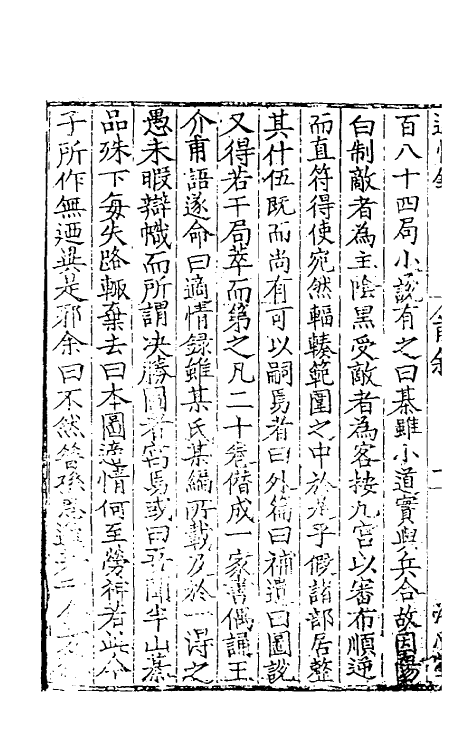 百八十四局小說有之曰棊雖小道實與兵合故因陽
白制敵者為主陰黑受敵者為客按九宮以審布順逆
而直符得使宛然輻輳範圍之中於是乎假諸部居整
其什伍既而尚有可以嗣焉者曰外篇曰補遺曰圖說
又得若干局萃而第之凡二十卷偹成一家書偶誦王
介甫語遂命曰適情錄雖某氏某編所載及於一淂之
愚未暇辯幟而所謂决勝圖者寓焉或曰吾聞半山棊
品殊下每失路輙棄去曰本圖適情何至勞神若此今
子所作無迺異是邪余曰不然昔孫